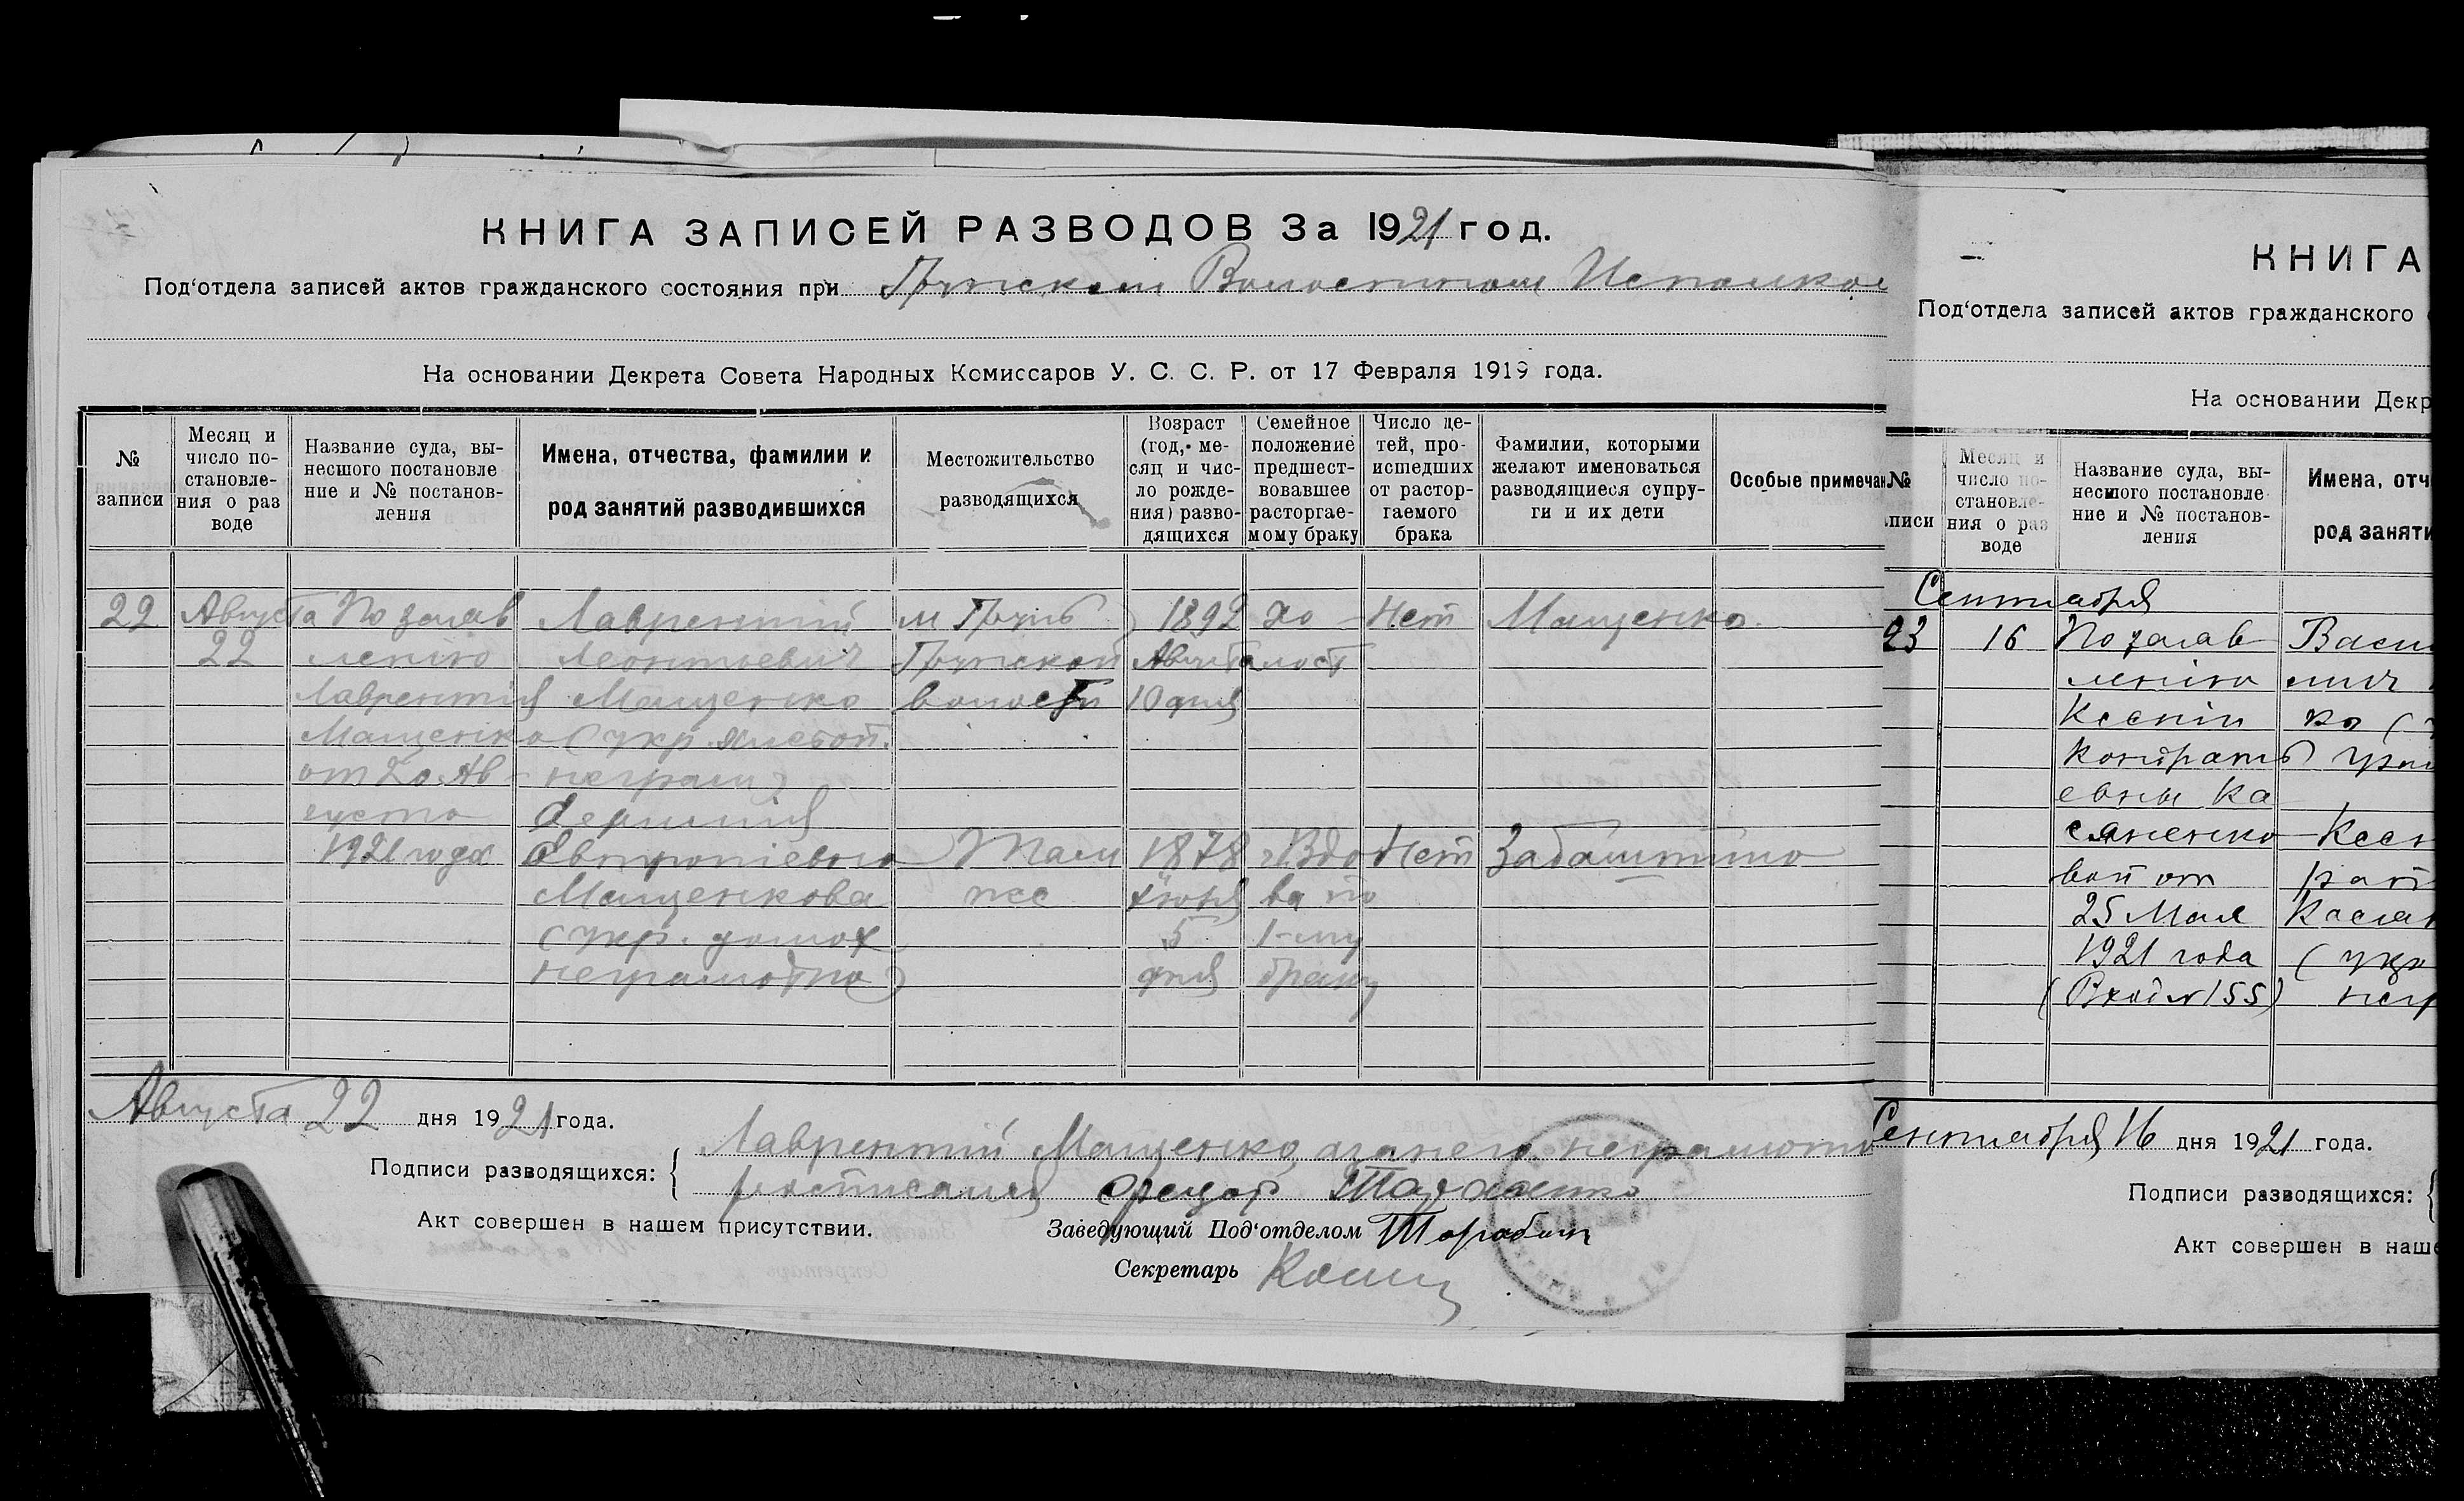 КНИГА ЗАПИСЕЙ РАЗВОДОВ За 1921 год.
Под‘отдела записей актов гражданского состояния при Грунском Волостном Исполко
На основании Декрета Совета Народных Комиссаров У. С. С. Р. от 17 Февраля 1919 года.
№ записи
Месяц и число по-становле-ния о раз воде
Название суда, вы-несшого постановле ние и № постанов-ления
Имена, отчества, фамилии и род занятий разводившихся
Местожительство разводящихся
Возраст (год, ме-сяц и чис-ло рожде-ния) разво-дящихся
Семейное положение предшест-вовавшее расторгае-мому браку
Число де-тей, про-исшедших от растор-гаемого брака
Фамилии, которыми желают именоваться разводящиеся супру-ги и их дети
Особые примечан
22 Августа По заяв Лаврентий м Грунь 1892 хо Нет Мащенко
22 лению Леонтьевич Грунской Августа лост
Лаврентия Мащенко волости 10 дня
Мащенко (укр.
от 20 Ав- неграм)
густа
1921 года Там 1878 Вдо Нет
Мащенкова же Июня ва по
(укр. 5 1-му
неграмотна) дня браку
Августа 22 дня 1921 года.
Подписи разводящихся: Лаврентий Мащенко, а за него неграмотн
росписался
Акт совершен в нашем присутствии.
Заведующий Под‘отделом
Секретарь
КНИГА
Под‘отдела записей актов гражданского
На основании Декр
№ писи
Месяц и число по-становле-ния о раз воде
Название суда, вы-несшого постановле ние и № постанов-ления
Имена, отч
род заняти
Сентября
23 16 По заяв Васи
лению
Ксении ко (
Кондрать
евны Ка
сяненко Ксен
вой от
25 Мая Касян
1921 года (укр
(Вход № 155) негр
Сентября 16 дня 1921 года.
Подписи разводящихся:
Акт совершен в наше